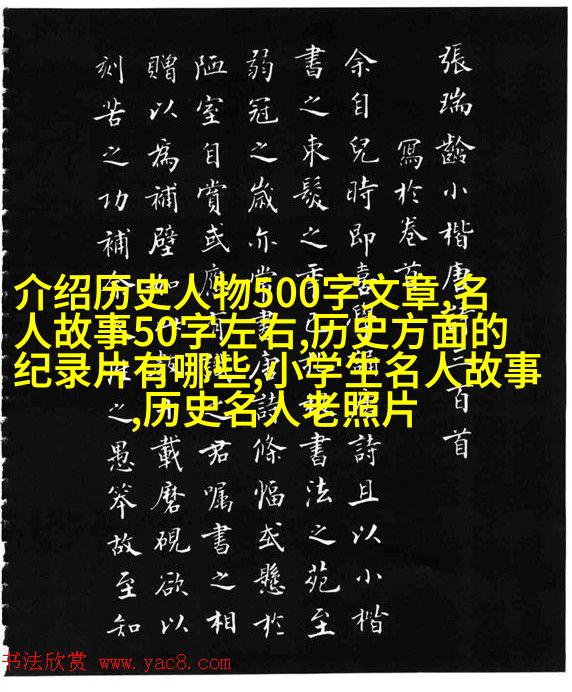 張瑞齡小楷唐詩三百首
寫於卷首
余自兒時即喜詩且以小楷
書之束髮之季書法之苑至
弱冠之歲亦嘗書唐詩條幅或懸於
陋室自賞或應君囑書之相
贈以爲補壁如載磨硯欲以
刻苦之功補之愚笨故至知
介绍历史人物500字文章,名
人故事50字左右,历史方面的
纪录片有哪些,小学生名人故事
,历史名人老照片
书法欣赏 www.yac8.com